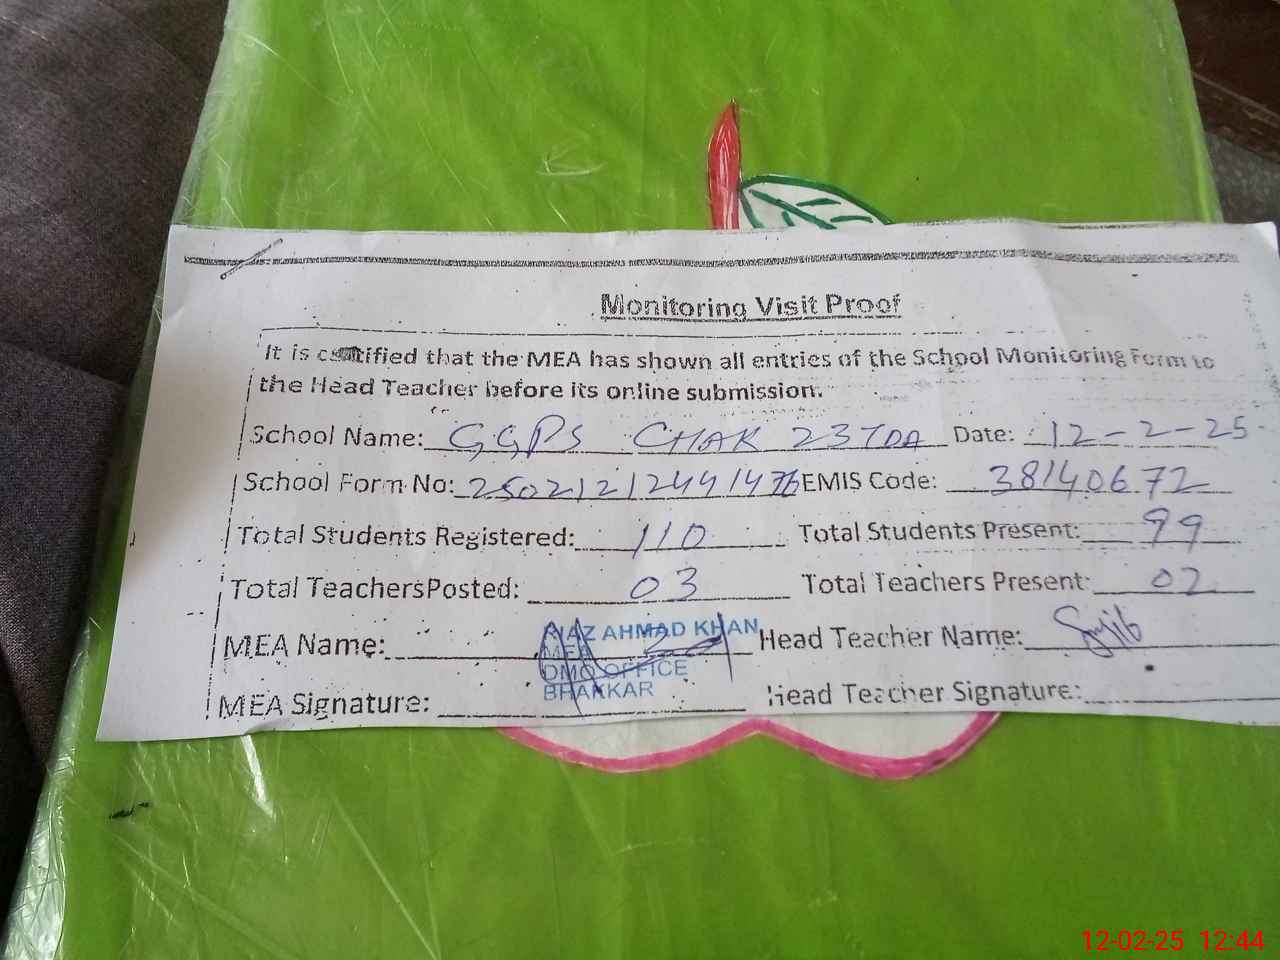 Monitoring Visit Proof
It is certified that the MEA has shown all entries of the School Monitoring Form to
the Head Teacher before its online submission.
School Name: GGPS CHAK 23TDA Date: 12-2-25
School Form No: EMIS Code: 38140672
Total Students Registered: 110 Total Students Present: 99
Total TeachersPosted: 03 Total Teachers Present: 02
MEA Name: RIAZ AHMAD KHAN Head Teacher Name:
MEA
DMO OFFICE
BHAKKAR
MEA Signature: Head Teacher Signature:
12-02-25 12:44